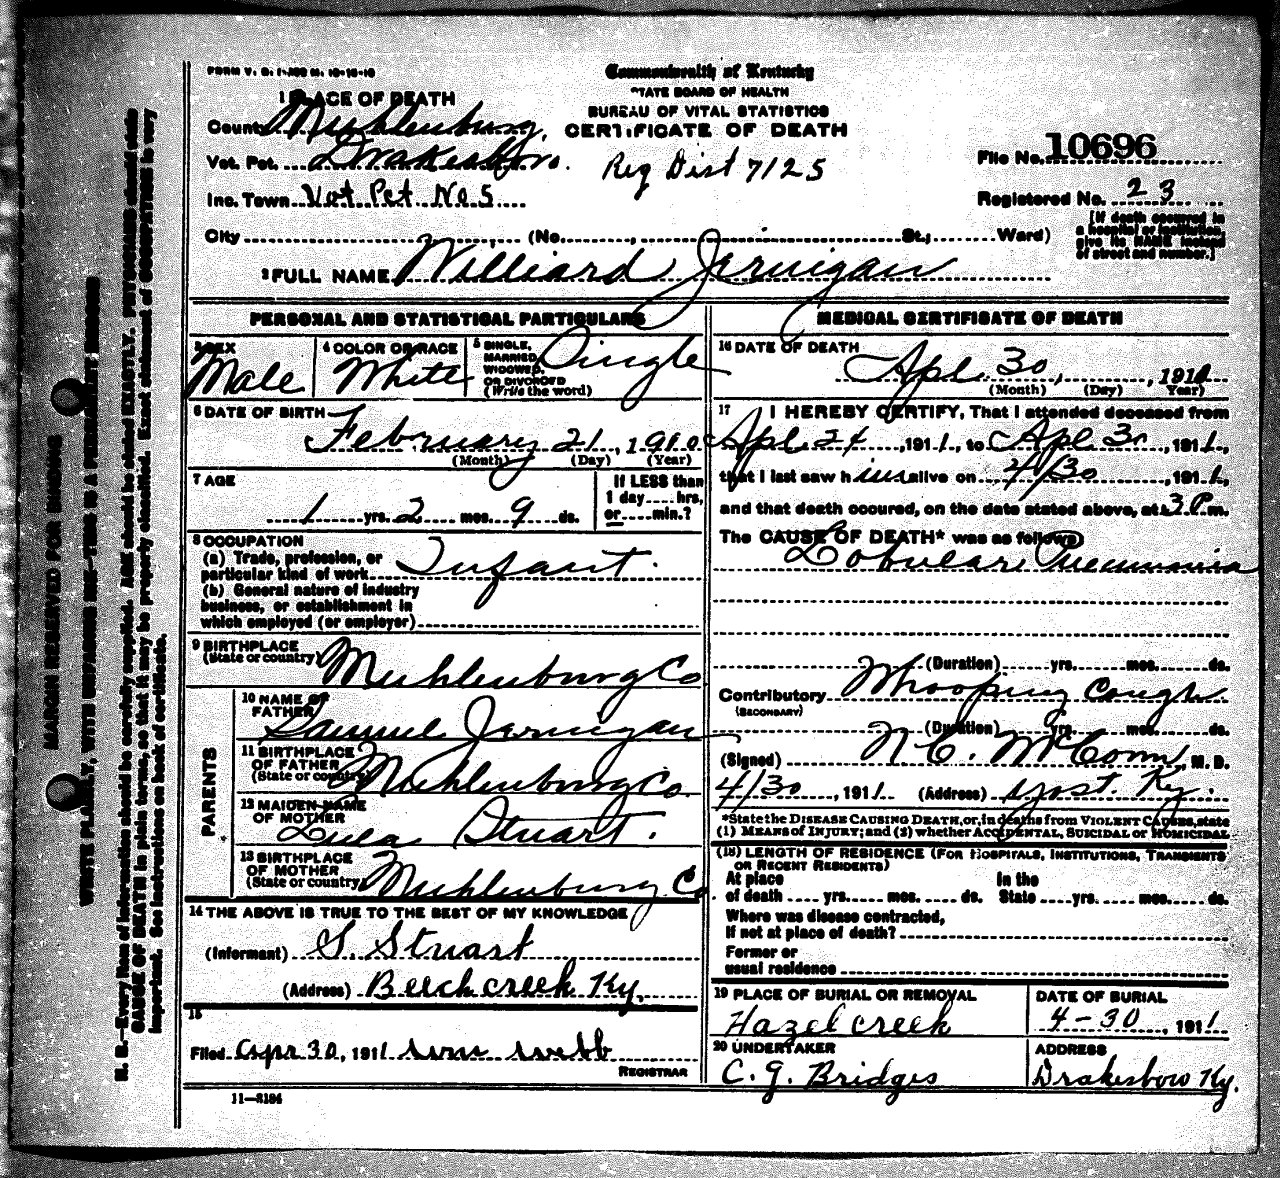 FORM V. S. 1-
Commonwealth of Kentucky
STATE BOARD OF HEALTH
BUREAU OF VITAL STATISTICS
CERTIFICATE OF DEATH
1 PLACE OF DEATH
County Muhlenburg,
Vot. Pct. Drakesboro.
Reg Dist 7125
File No. 10696
Inc. Town Vot Pct No 5
Registered No. 23
[If death occurred in a hospital or institution, give its NAME instead of street and number.]
City (No. , St.; Ward)
2 FULL NAME Williard Jernigan
PERSONAL AND STATISTICAL PARTICULARS
3 SEX Male
4 COLOR OR RACE White
5 SINGLE, MARRIED, WIDOWED, OR DIVORCED (Write the word) Single
6 DATE OF BIRTH February 21, 1910
(Month) (Day) (Year)
7 AGE
1 yrs. 2 mos. 9 ds.
If LESS than 1 day hrs, or min.?
8 OCCUPATION
(a) Trade, profession, or particular kind of work Infant.
(b) General nature of industry
business, or establishment in
which employed (or employer)
9 BIRTHPLACE
(State or country) Muhlenburg Co
PARENTS
10 NAME OF FATHER Samuel Jernigan
11 BIRTHPLACE OF FATHER (State or country) Muhlenburg Co.
12 MAIDEN NAME OF MOTHER Lula Stuart.
13 BIRTHPLACE OF MOTHER (State or country) Muhlenburg Co
14 THE ABOVE IS TRUE TO THE BEST OF MY KNOWLEDGE
(Informant) S. Stuart
(Address) Beech creek Ky.
15
Filed Apr 30, 1911 Wm Webb
REGISTRAR
11-3184
MEDICAL CERTIFICATE OF DEATH
16 DATE OF DEATH
Apl 30, 1911
(Month) (Day) (Year)
17 I HEREBY CERTIFY, That I attended deceased from
Apl 24, 1911, to Apl 30, 1911,
that I last saw him alive on 4/30, 1911,
and that death occured, on the date stated above, at 3 P.m.
The CAUSE OF DEATH* was as follows
Lobular Pneumonia
(Duration) yrs. mos. ds.
Contributory Whooping Cough
(SECONDARY)
(Duration) yrs. mos. ds.
(Signed) N.C. McConn, M. D.
4/30, 1911 (Address) Yost. Ky.
*State the DISEASE CAUSING DEATH, or, in deaths from VIOLENT CAUSES, state
(1) MEANS OF INJURY; and (2) whether ACCIDENTAL, SUICIDAL or HOMICIDAL
(18) LENGTH OF RESIDENCE (FOR HOSPITALS, INSTITUTIONS, TRANSIENTS
OR RECENT RESIDENTS)
At place In the
of death yrs. mos. ds. State yrs. mos. ds.
Where was disease contracted,
If not at place of death?
Former or
usual residence
19 PLACE OF BURIAL OR REMOVAL
Hazel creek
DATE OF BURIAL
4-30, 1911
20 UNDERTAKER
C. G. Bridges
ADDRESS
Drakesboro Ky.
MARGIN RESERVED FOR BINDING
WRITE PLAINLY, WITH UNFADING INK—THIS IS A PERMANENT RECORD
N. B.—Every item of information should be carefully supplied. AGE should be stated EXACTLY. PHYSICIANS should state
CAUSE OF DEATH in plain terms, so that it may be properly classified. Exact statement of OCCUPATION is very
important. See instructions on back of certificate.